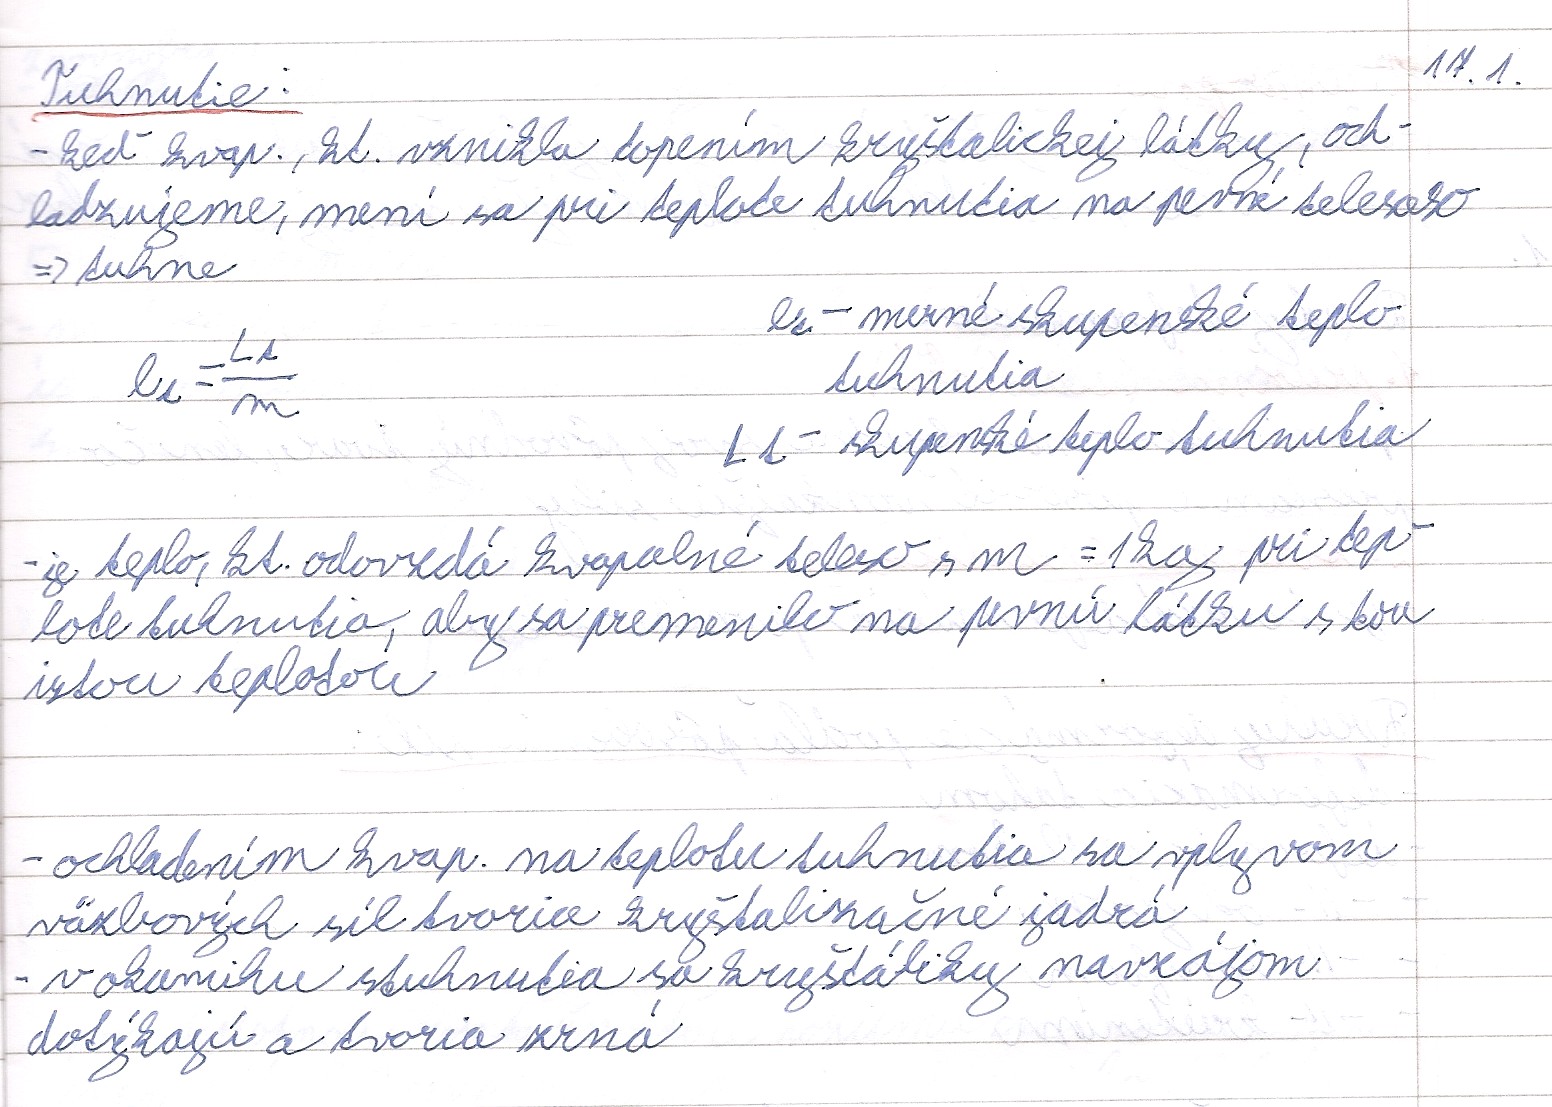 17. 1.
Tuhnutie:
- keď kvap., kt. vznikla topením kryštalickej látky, och-
ladzujeme, mení sa pri teplote tuhnutia na pevné teleso
=> tuhne
lt - merné skupenské teplo
tuhnutia
lt = Lt / m
Lt - skupenské teplo tuhnutia
- je teplo, kt. odovzdá kvapalné teleso s m = 1kg pri tep-
lote tuhnutia, aby sa premenilo na pevnú látku s tou
istou teplotou
- ochladením kvap. na teplotu tuhnutia sa vplyvom
väzbových síl tvoria kryštalizačné jadrá
- v okamihu stuhnutia sa kryštáliky navzájom
dotýkajú a tvoria zrná